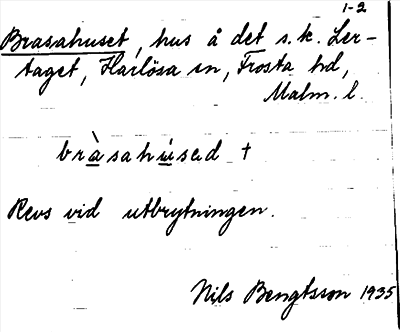 1-2
Brasahuset, hus å det s.k. Ler-
taget, Harlösa sn, Frosta hd,
Malm. l.
bràsahúsad †
Revs vid utbrytningen.
Nils Bengtsson 1935